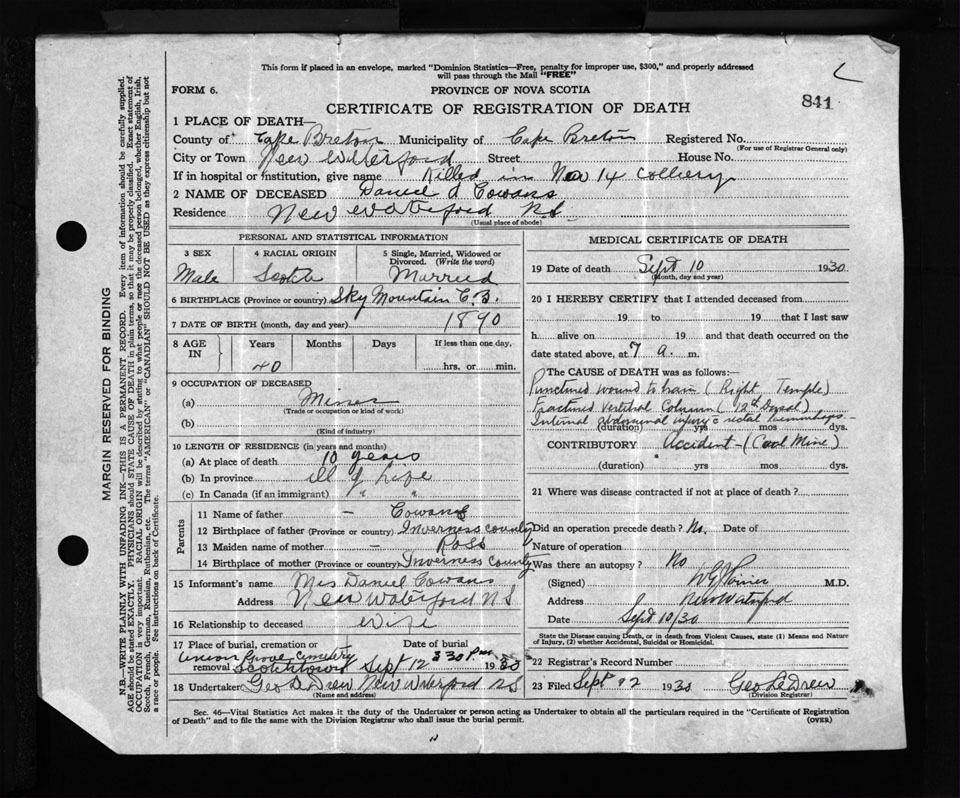 This form if placed in an envelope, marked "Dominion Statistics—Free, penalty for improper use, $300," and properly addressed
will pass through the Mail "FREE"
FORM 6.
PROVINCE OF NOVA SCOTIA
841
CERTIFICATE OF REGISTRATION OF DEATH
1 PLACE OF DEATH—
County of Cape Breton Municipality of Cape Breton Registered No.
(For use of Registrar General only)
City or Town New Waterford Street House No.
If in hospital or institution, give name Killed in No 14 Colliery
2 NAME OF DECEASED Daniel A Cowans
Residence New Waterford N.S.
(Usual place of abode)
PERSONAL AND STATISTICAL INFORMATION
3 SEX 4 RACIAL ORIGIN 5 Single, Married, Widowed or
Divorced. (Write the word)
Male Scotch Married
6 BIRTHPLACE (Province or country) Sky Mountain C.B.
7 DATE OF BIRTH (month, day and year) 1890
8 AGE IN Years Months Days If less than one day,
40 hrs. or min.
9 OCCUPATION OF DECEASED
(a) Miner
(Trade or occupation or kind of work)
(b)
(Kind of industry)
10 LENGTH OF RESIDENCE (in years and months)
(a) At place of death 10 years
(b) In province all of life
(c) In Canada (if an immigrant) " "
Parents
11 Name of father — Cowans
12 Birthplace of father (Province or country) Inverness County
13 Maiden name of mother — Ross
14 Birthplace of mother (Province or country) Inverness County
15 Informant's name Mrs Daniel Cowans
Address New Waterford N S
16 Relationship to deceased wife
17 Place of burial, cremation or Date of burial
Union Grove Cemetery 3 30 P.m.
removal Scotchtown Sept 12 1930
18 Undertaker Geo Le Drew New Waterford N S
(Name and address)
MEDICAL CERTIFICATE OF DEATH
19 Date of death Sept 10 1930
(Month, day and year)
20 I HEREBY CERTIFY that I attended deceased from
19 to 19 that I last saw
h alive on 19 and that death occurred on
the date stated above, at 7 a. m.
The CAUSE of DEATH was as follows:—
Punctured wound to brain (Right Temple)
Fractured vertebral Column (12th Dorsal)
Internal abdominal injury c rectal hemorrhage
(duration) yrs mos dys.
CONTRIBUTORY Accident - (Coal Mine)
(duration) yrs mos dys.
21 Where was disease contracted if not at place of death?
Did an operation precede death? No. Date of
Nature of operation
Was there an autopsy? No
(Signed) M.D.
Address New Waterford
Date Sept 10/30
State the Disease causing Death, or in death from Violent Causes, state (1) Means and Nature
of Injury, (2) whether Accidental, Suicidal or Homicidal.
22 Registrar's Record Number
23 Filed Sept 1930 Geo Le Drew
(Division Registrar)
Sec. 46—Vital Statistics Act makes it the duty of the Undertaker or person acting as Undertaker to obtain all the particulars required in the "Certificate of Registration
of Death" and to file the same with the Division Registrar who shall issue the burial permit.
(OVER)
MARGIN RESERVED FOR BINDING
N.B.—WRITE PLAINLY WITH UNFADING INK—THIS IS A PERMANENT RECORD. Every item of information should be carefully supplied.
AGE should be stated EXACTLY. PHYSICIANS should STATE CAUSE OF DEATH in plain terms, so that it may be properly classified. Exact statement of
OCCUPATION is very important. RACIAL ORIGIN will be described by stating to what people or race the deceased person belonged, whether English, Irish,
Scotch, French, German, Russian, Ruthenian, etc. The terms "AMERICAN" or "CANADIAN" SHOULD NOT BE USED as they express citizenship but not
a race or people. See instructions on back of Certificate.